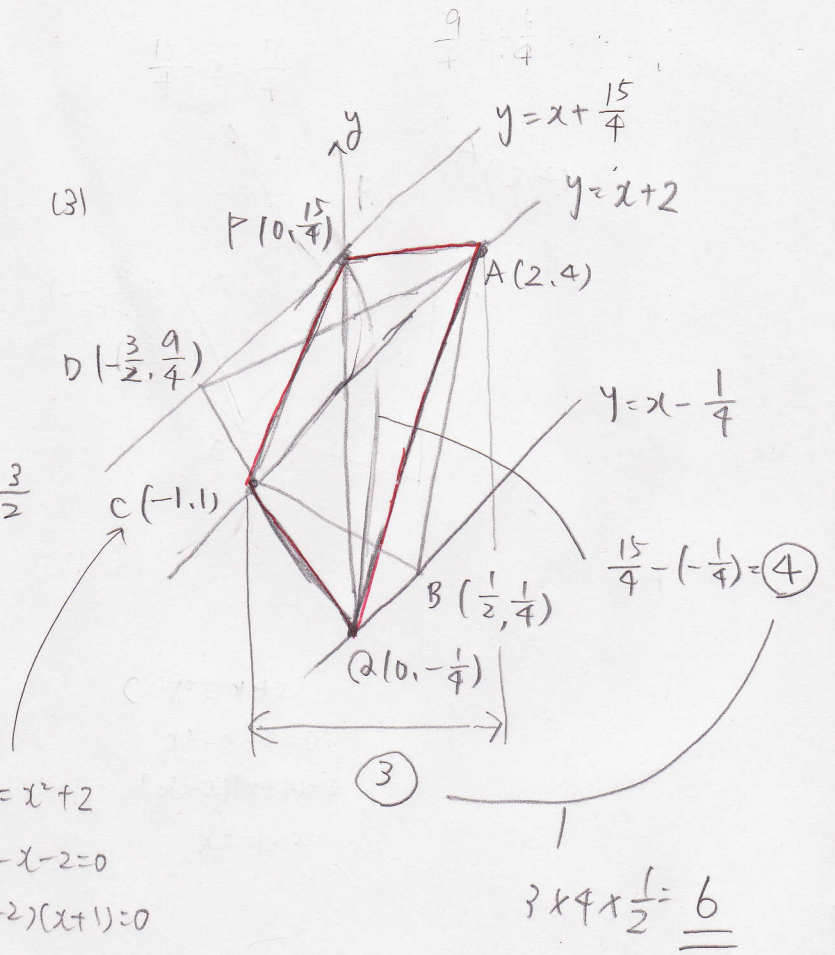 y=x+15/4
y
(3)
y=x+2
P(0,15/4)
A(2,4)
D(-3/2,9/4)
y=x-1/4
3/2
C(-1,1)
15/4-(-1/4)=4
B(1/2,1/4)
Q(0,-1/4)
3
=x²+2
-x-2=0
-2)(x+1)=0
3×4×1/2=6